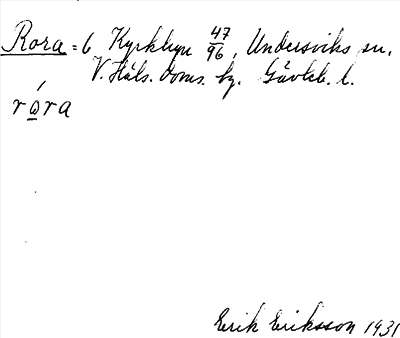 Rora = 6 Kyrkbyn 47/96, Undersviks sn.
V. Häls. doms. hg. Gävleb. l.
róra
Erik Eriksson 1931